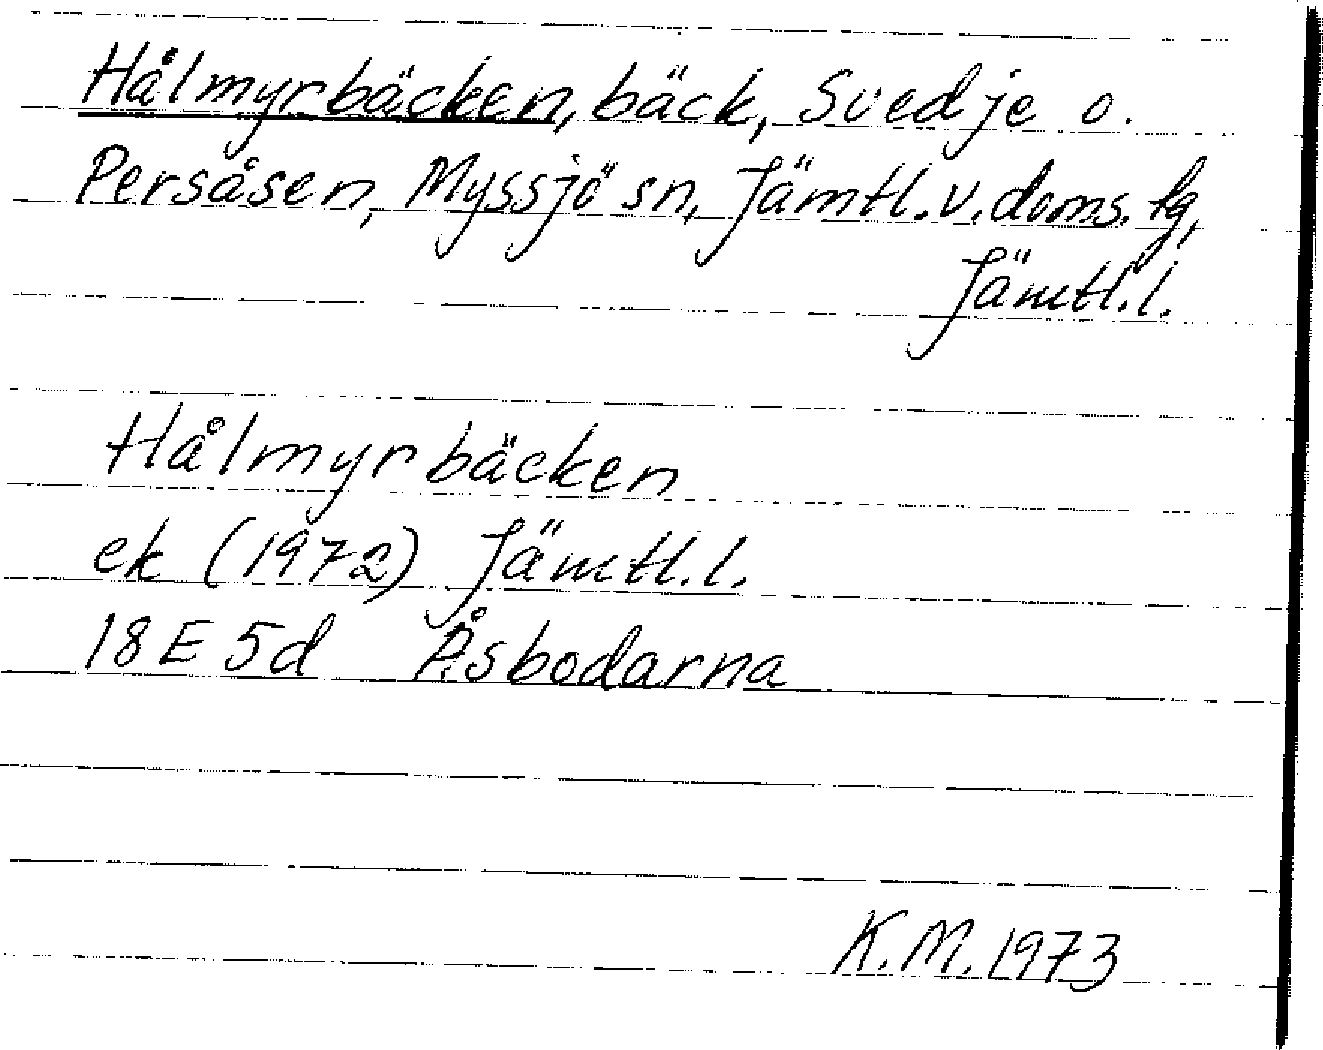 Hålmyrbäcken, bäck, Svedje o.
Persåsen, Myssjö sn, Jämtl. v. doms. lg,
Jämtl. l.
Hålmyrbäcken
ek (1972) Jämtl. l.
18 E 5d Åsbodarna
K. M. 1973